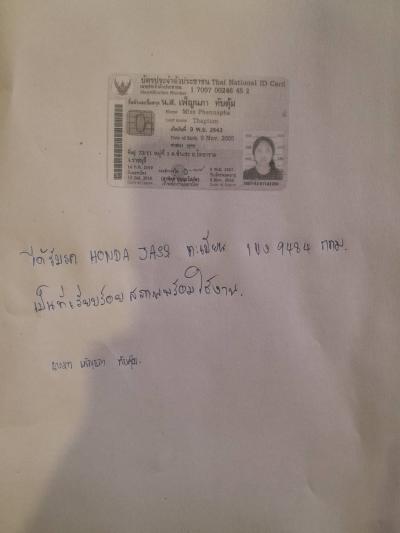 บัตรประจำตัวประชาชน Thai National ID Card
เลขประจำตัวประชาชน
Identification Number
1 7097 00246 45 2
ชื่อตัวและชื่อสกุล น.ส. เพ็ญนภา ทับตุ้ม
Name Miss Phennapha
Last name Thaptum
เกิดวันที่ 9 พ.ย. 2543
Date of Birth 9 Nov. 2000
ที่อยู่ 73/11 หมู่ที่
จ.ราชบุรี
ได้รับรถ HONDA JASS ทะเบียน 1ขง 9484 กทม.
เป็นที่เรียบร้อย สภาพพร้อมใช้งาน.
นางสาว เพ็ญนภา ทับตุ้ม.